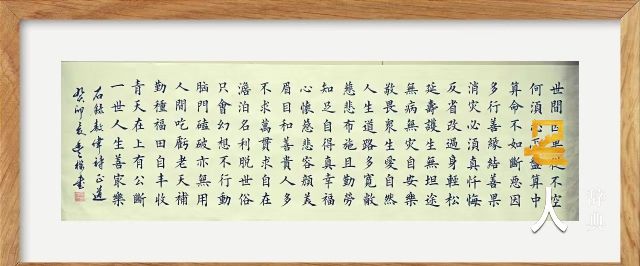 世間不空
何須算中
算命不如斷惡因
多行善緣結善果
消灾必須真忏悔
反省改過身輕松
延壽護生無坦途
無病無灾自安樂
敬畏衆生愛自然
人生道路多寬敞
慈悲布施且勤勞
知足自得真幸福
心懷慈悲容顔美
眉目和善貴人多
不求萬貫求自在
澹泊名利脱世俗
只會幻想不行動
腦門磕破亦無用
人間吃虧老天補
勤種福田自丰收
青天在上有公斷
一世人生善家樂
詩正道
癸卯夏書
人